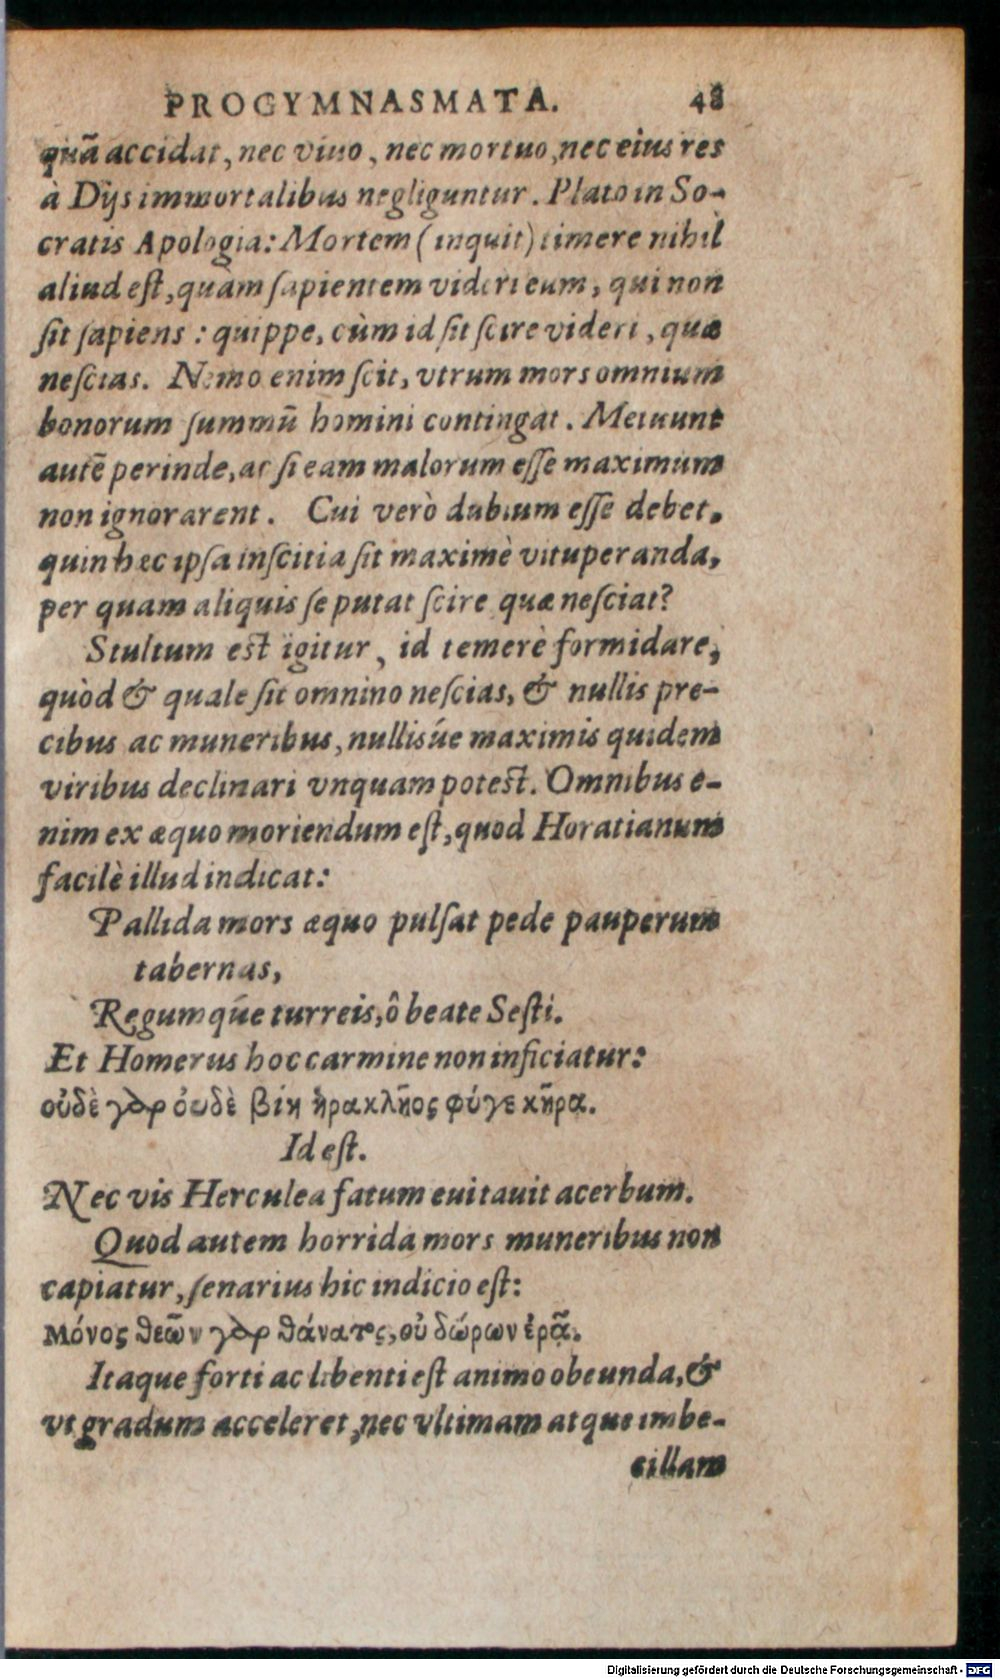 PROGYMNASMATA. 48
quã accidat, nec viuo, nec mortuo, nec eius res
à Dijs immortalibus negliguntur. Plato in So-
cratis Apologia: Mortem (inquit) timere nihil
aliud est, quàm sapientem videri eum, qui non
sit sapiens: quippe, cùm id sit scire videri, quæ
nescias. Nemo enim scit, vtrum mors omnium
bonorum summũ homini contingat. Metuunt
autẽ perinde, ac si eam malorum esse maximum
non ignorarent. Cui verò dubium esse debet,
quin hæc ipsa inscitia sit maximè vituperanda,
per quam aliquis se putat scire quæ nesciat?
Stultum est igitur, id temerè formidare,
quòd & quale sit omnino nescias, & nullis pre-
cibus ac muneribus, nullisúe maximis quidem
viribus declinari vnquam potest. Omnibus e-
nim ex æquo moriendum est, quod Horatianum
facilè illud indicat:
Pallida mors æquo pulsat pede pauperum
tabernas,
Regumq́ue turreis, ô beate Sesti.
Et Homerus hoc carmine non inficiatur:
οὐδὲ γὰρ οὐδὲ βίη ἡρακλῆος φύγε κῆρα.
Id est.
Nec vis Herculea fatum euitauit acerbum.
Quod autem horrida mors muneribus non
capiatur, senarius hic indicio est:
Μόνος θεῶν γὰρ θάνατος, οὐ δώρων ἐρᾷ.
Itaque forti ac libenti est animo obeunda, &
vt gradum acceleret, nec vltimam atque imbe-
cillam
Digitalisierung gefördert durch die Deutsche Forschungsgemeinschaft - DFG